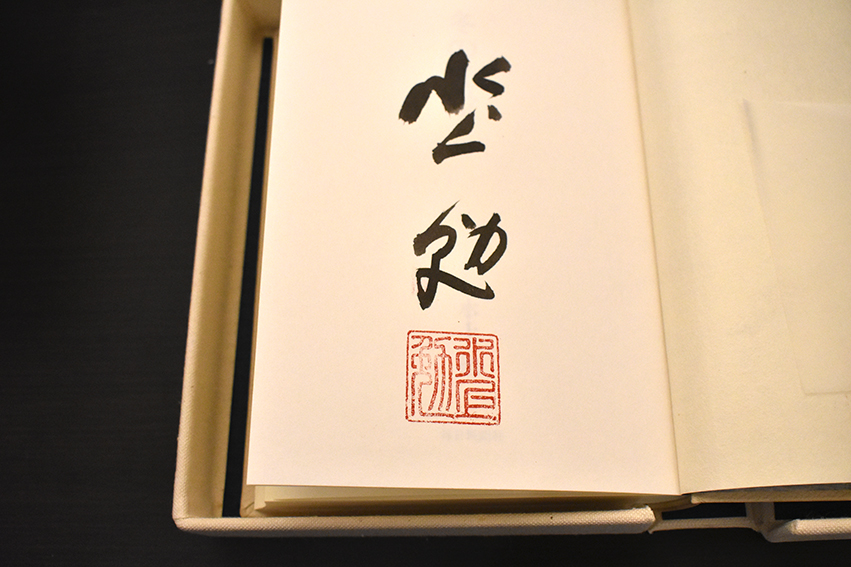 水上勉
水上勉